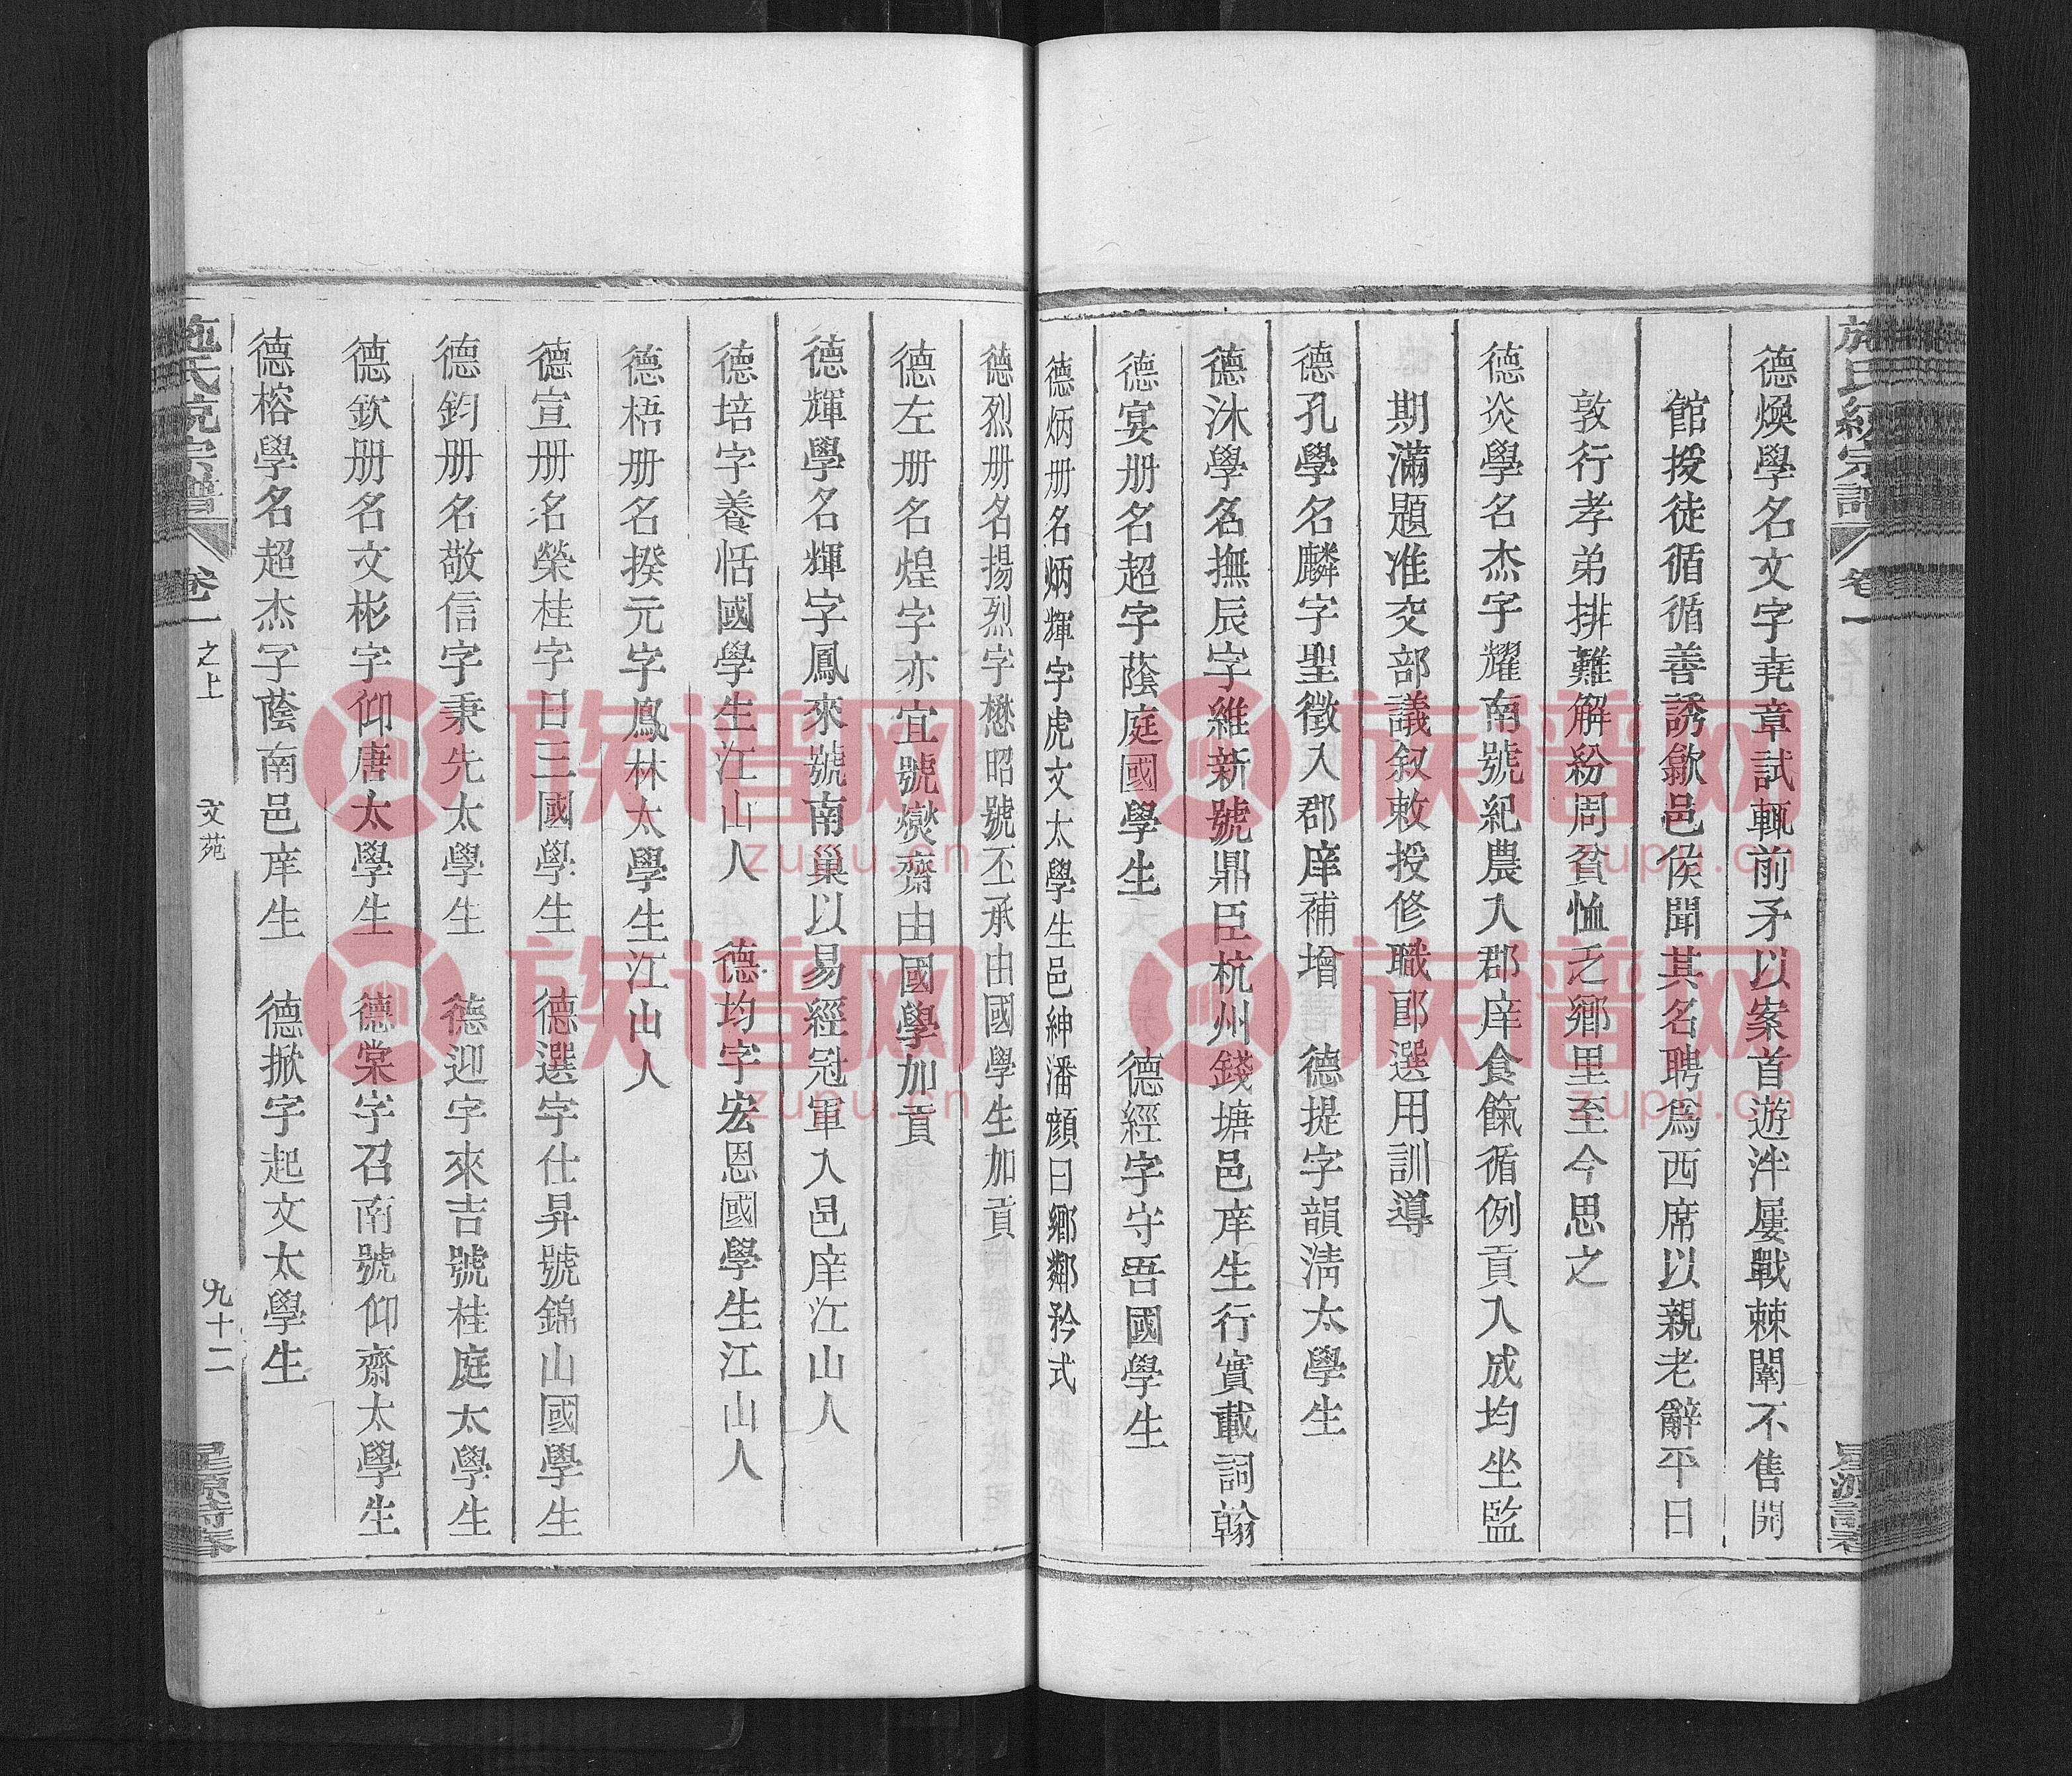 德煥學名文字堯章試輒前矛以案首遊泮屢戰棘闈不售開
館授徒循循善誘歙邑侯聞其名聘爲西席以親老辭平日
敦行孝弟排難解紛周貧恤乏鄉里至今思之
德炎學名杰字耀南號紀農入郡庠食餼循例貢入成均坐監
期滿題准交部議叙敕授修職郎選用訓導
德孔學名麟字聖徵入郡庠補增　德提字韻淸太學生
德沐學名撫辰字維新號鼎臣杭州錢塘邑庠生行實載詞翰
德宴册名超字蔭庭國學生　德經字守吾國學生
德炳册名炳輝字虎文太學生邑紳潘顔曰鄉鄰矜式
德烈册名揚烈字懋昭號丕承由國學生加貢
德左册名煌字亦宜號爕齋由國學加貢
德輝學名輝字鳳來號南巢以易經冠軍入邑庠江山人
德培字養恬國學生江山人　德均字宏恩國學生江山人
德梧册名揆元字鳳林太學生江山人
德宣册名榮桂字日三國學生　德選字仕昇號錦山國學生
德鈞册名敬信字秉先太學生　德迎字來吉號桂庭太學生
德欽册名文彬字仰唐太學生　德棠字召南號仰齋太學生
德榕學名超杰字蔭南邑庠生　德掀字起文太學生
卷一
之上
文苑
九十二
族谱网
zupu.cn
族谱网
zupu.cn
族谱网
zupu.cn
族谱网
zupu.cn